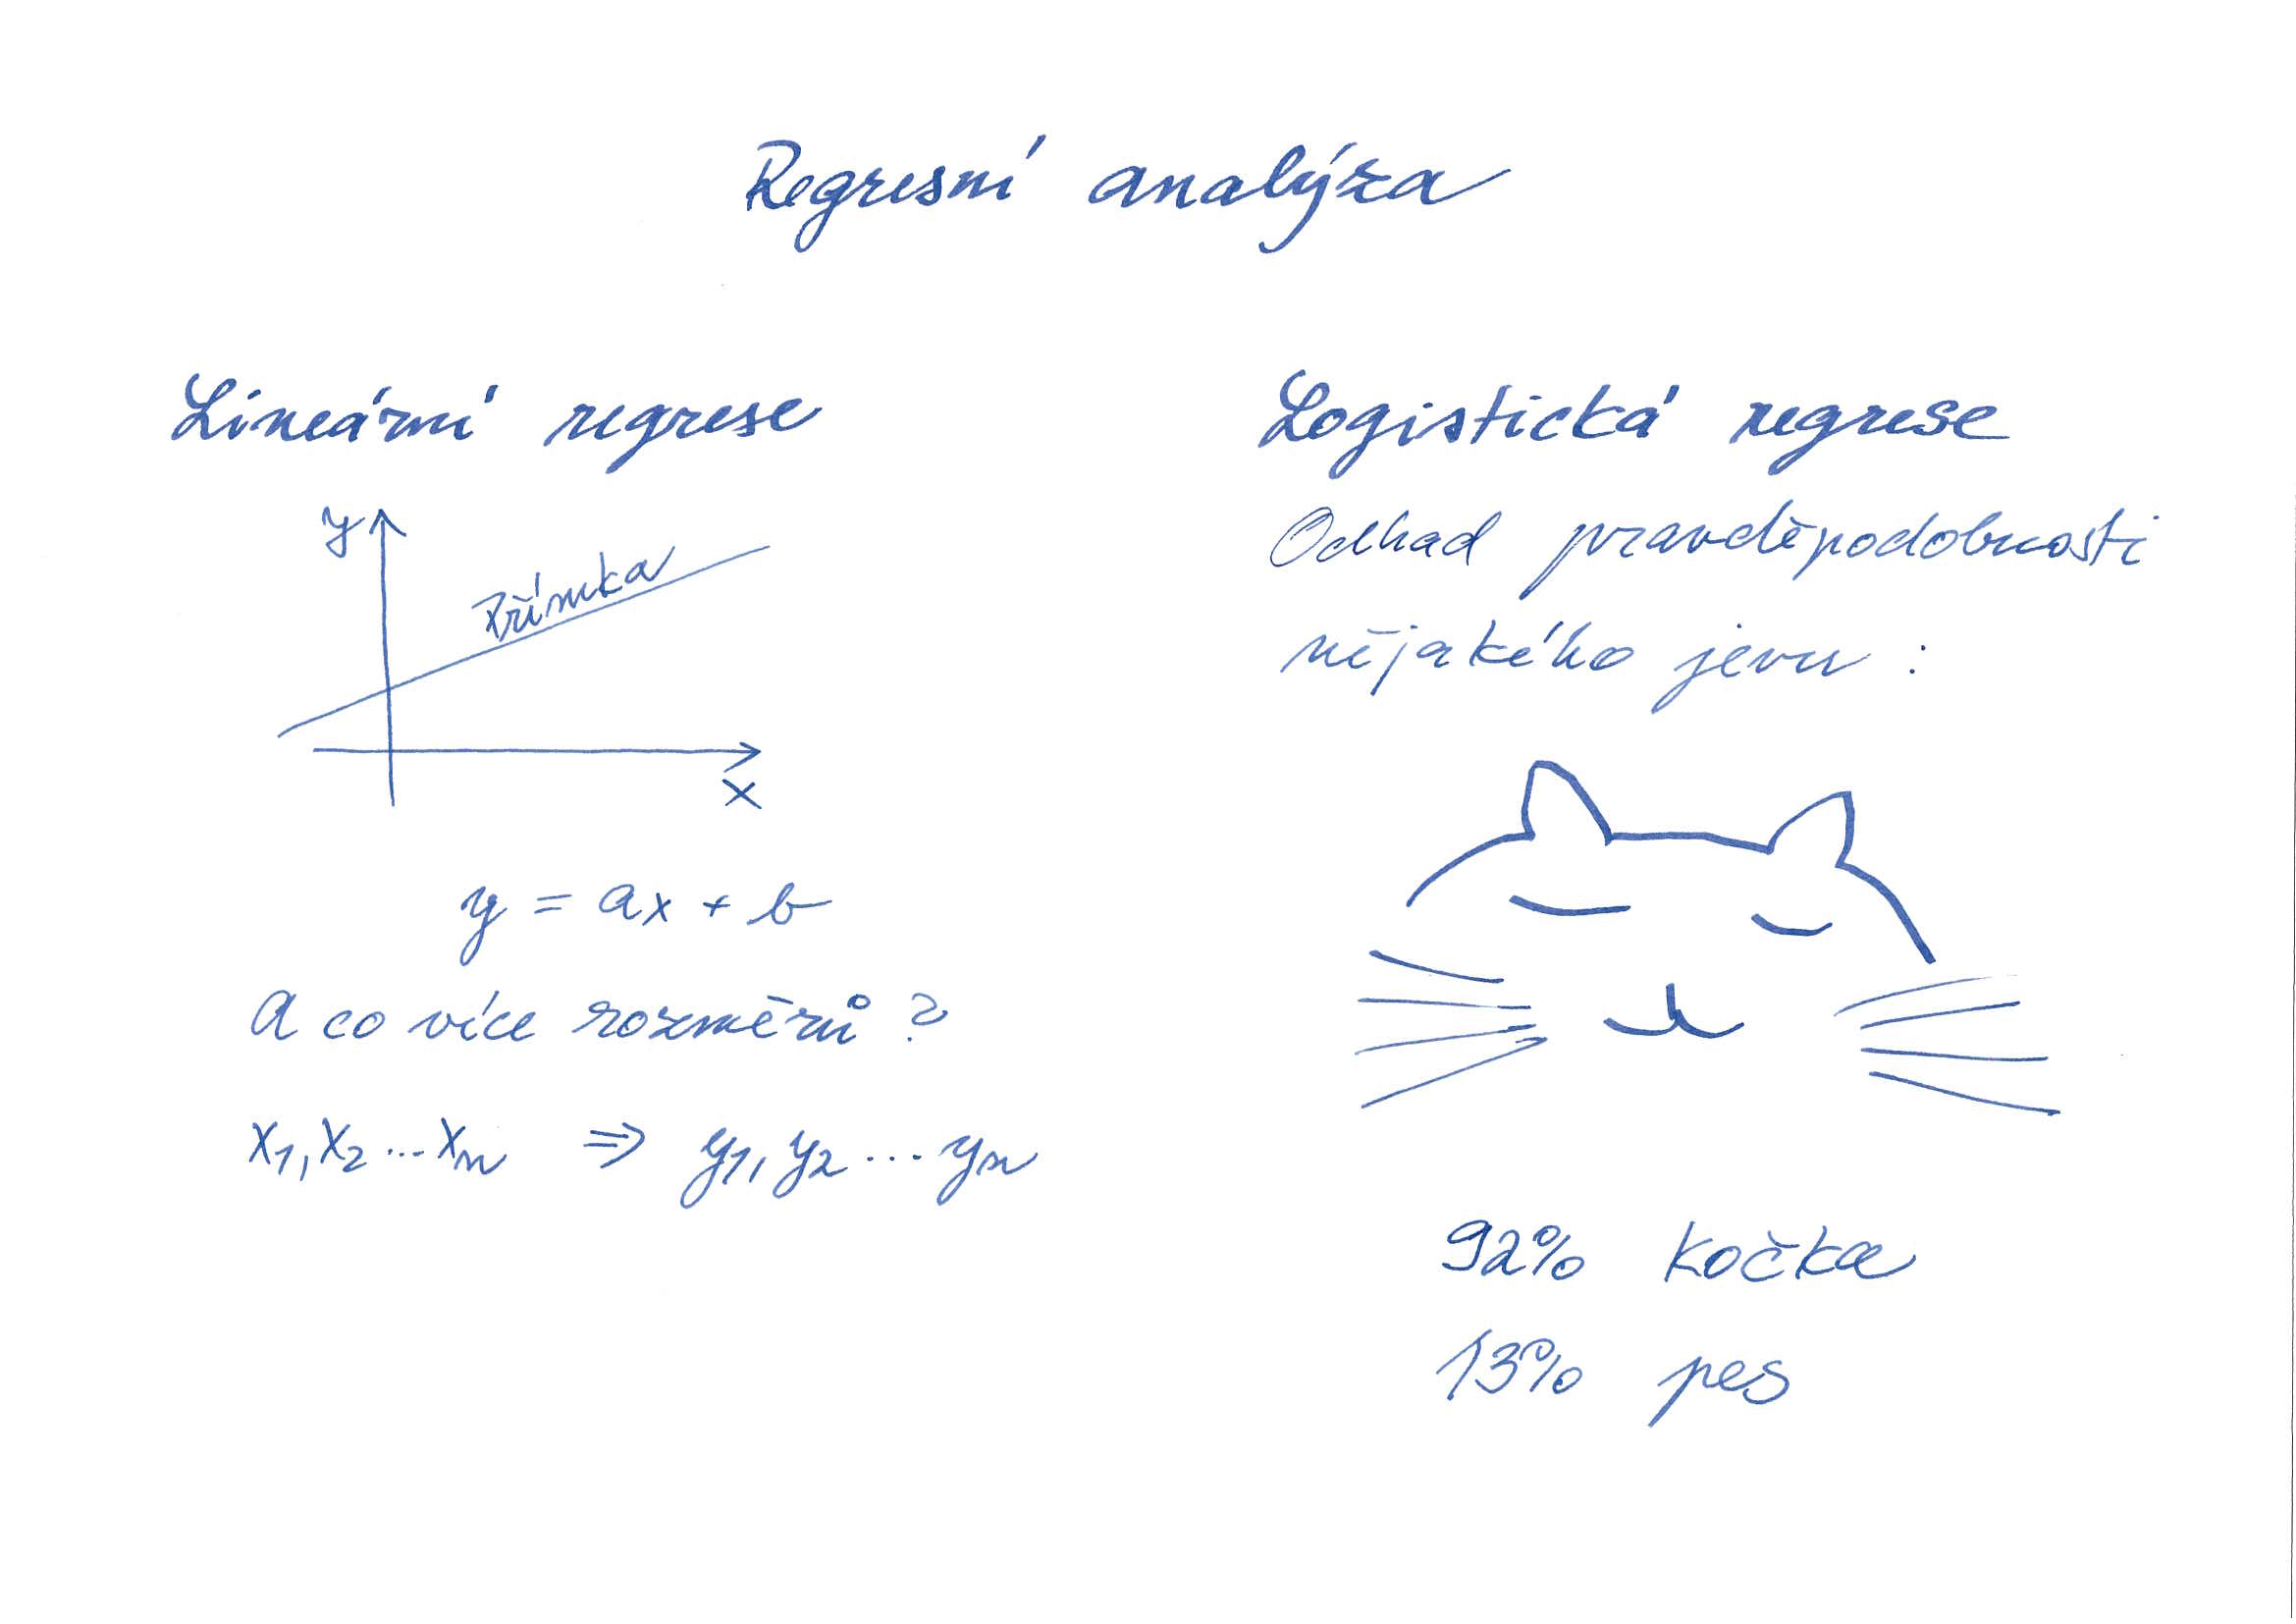 Regresní analýza
Lineární regrese
y
Přímka
x
y = ax + b
A co více rozměrů ?
x1, x2 ... xn ⇒ y1, y2 ... yn
Logistická regrese
Odhad pravděpodobnosti
nějakého jevu :
92% kočka
13% pes